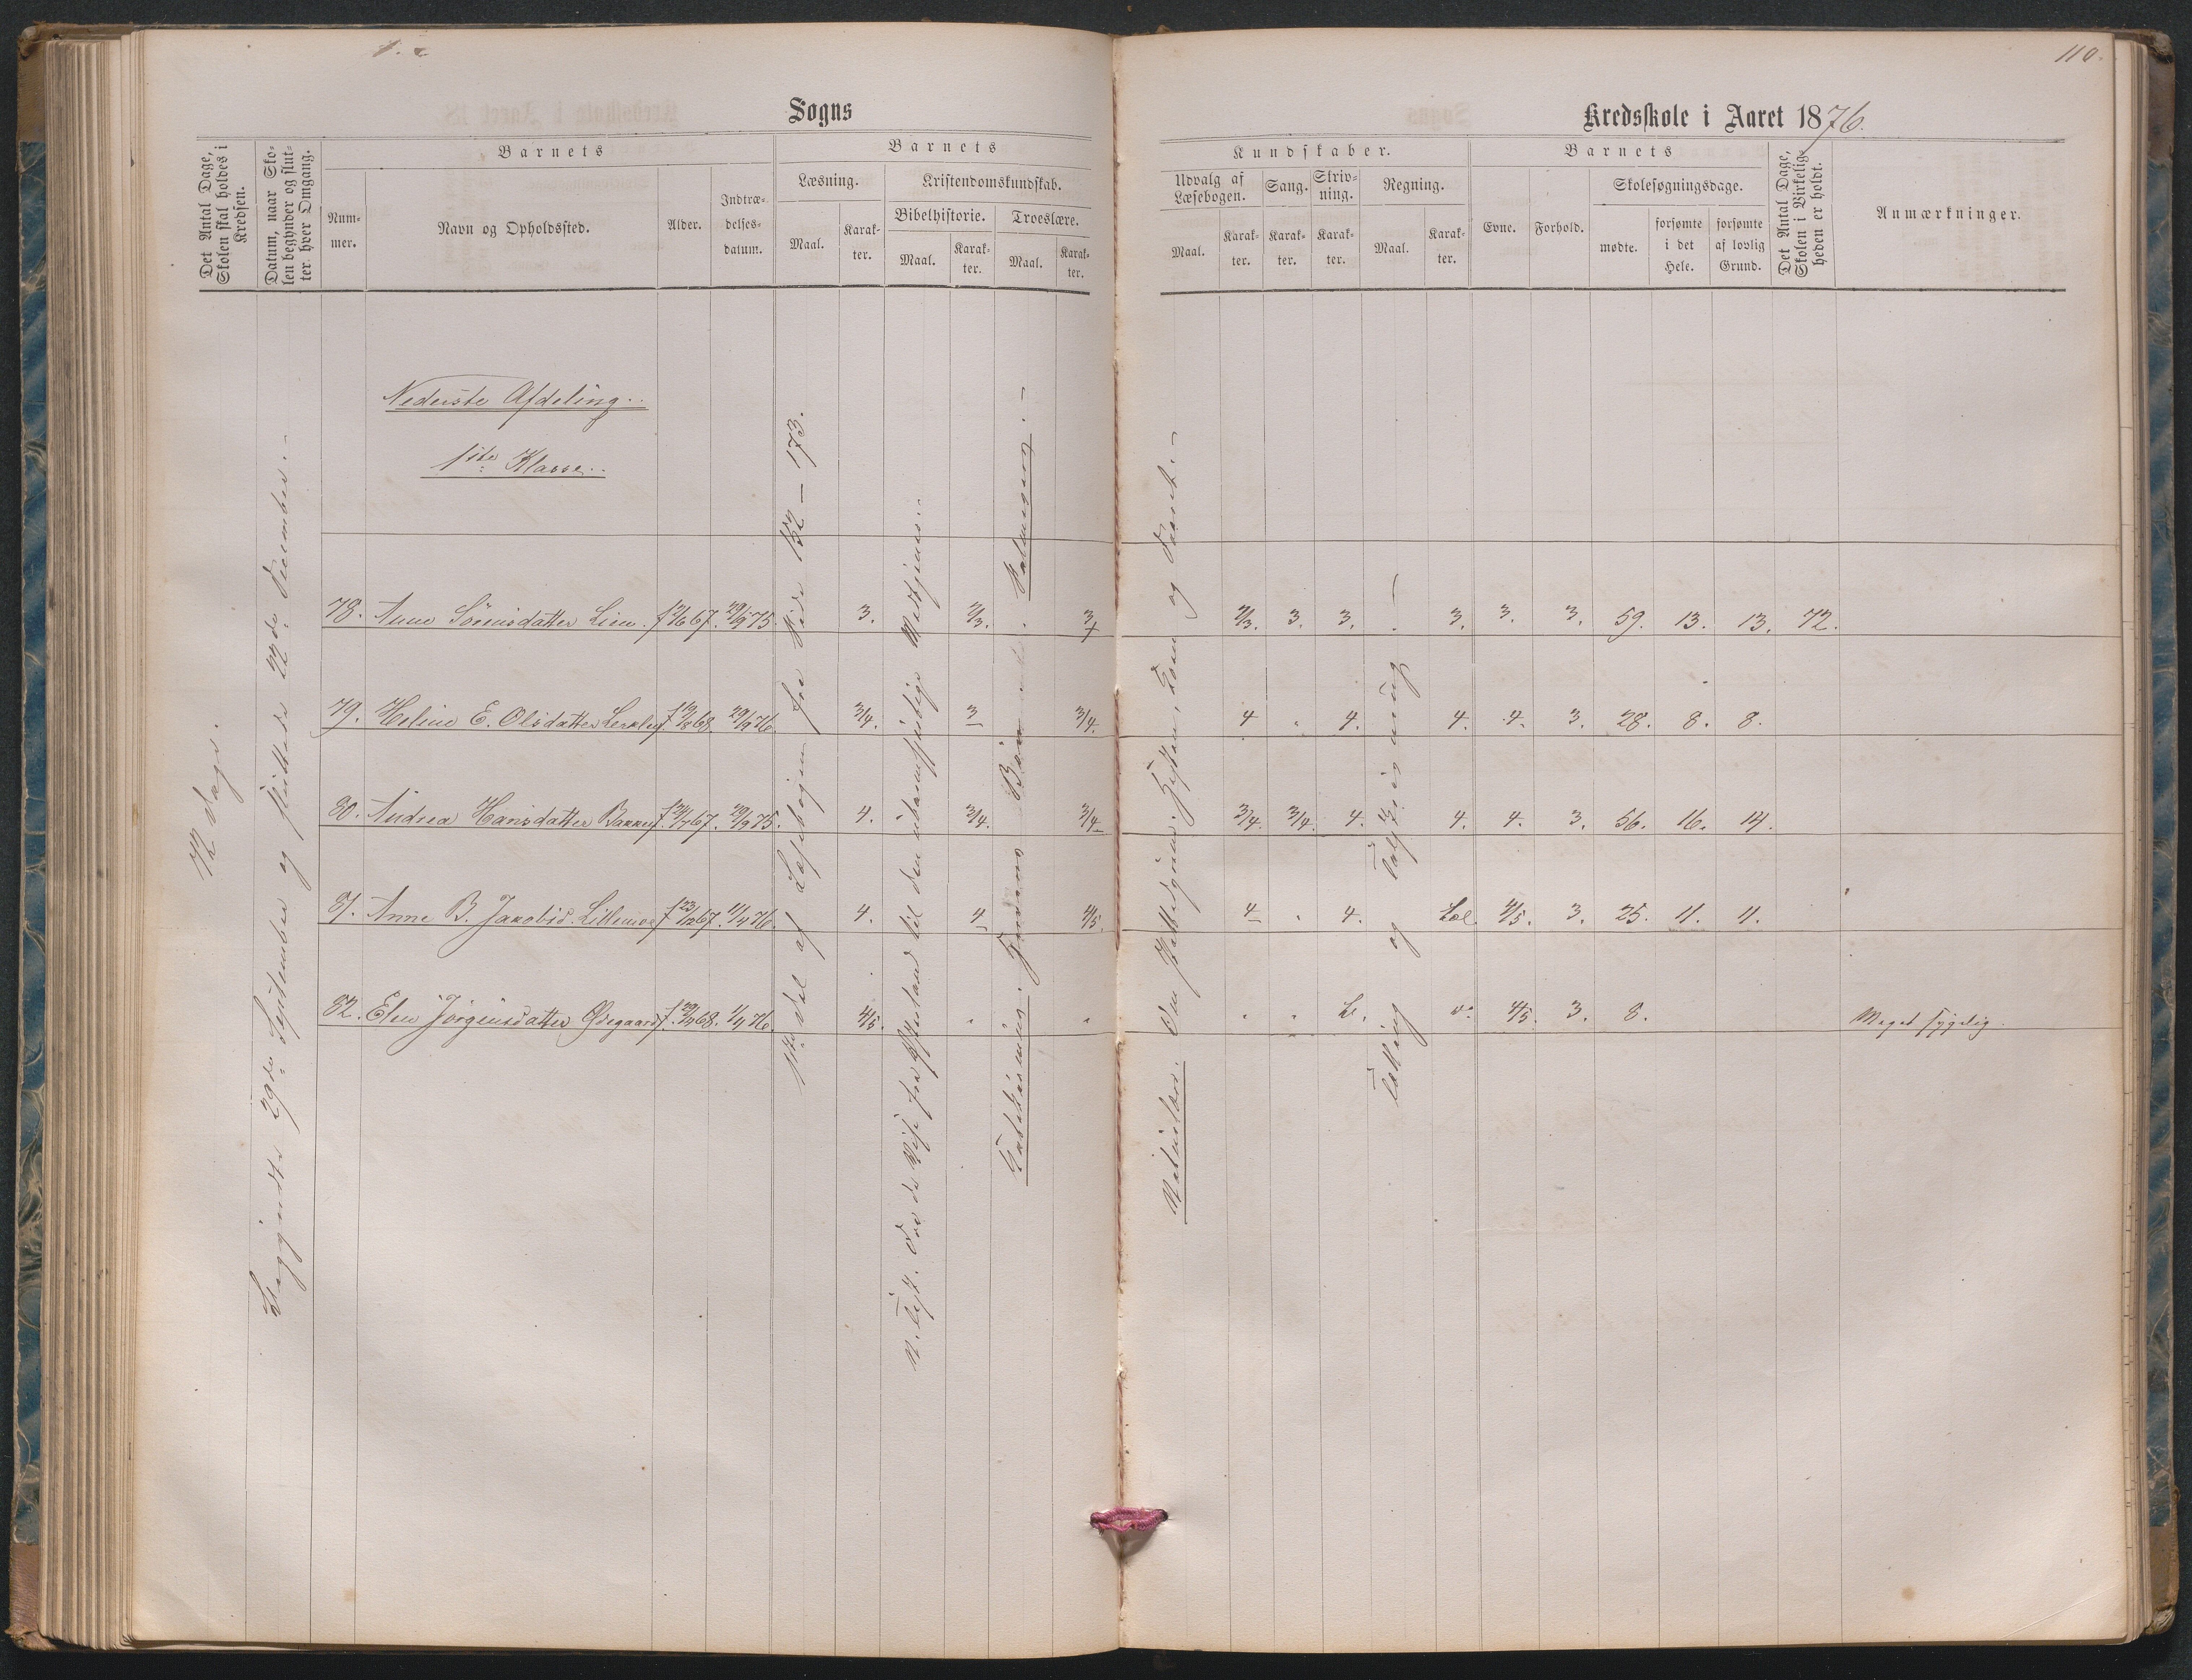 110.
Sogns
Kredsskole i Aaret 1876.
Det Antal Dage, Skolen skal holdes i Kredsen.
Datum, naar Skolen begynder og slutter hver Omgang.
Barnets
Nummer.
Navn og Opholdssted.
Alder.
Indtrædelsesdatum.
Barnets
Læsning.
Maal.
Karakter.
Kristendomskundskab.
Bibelhistorie.
Maal.
Karakter.
Troeslære.
Maal.
Karakter.
Kundskaber.
Udvalg af Læsebogen.
Maal.
Karakter.
Sang.
Karakter.
Skrivning.
Karakter.
Regning.
Maal.
Karakter.
Barnets
Evne.
Forhold.
Skolesøgningsdage.
mødte.
forsømte i det Hele.
forsømte af lovlig Grund.
Det Antal Dage, Skolen i Virkeligheden er holdt.
Anmærkninger.
72 Dage.
Begyndte 29de September og sluttede 22de December.
Nederste Afdeling.
1ste Klasse.
1ste Del af Læsebogen fra Side 132 – 173.
N. Test. Fra de Vise fra Østerland til den ubarmhjertige Medtjener.
Katekismus.
Naturlære.
Tælling og Talskrivning
78. Anne Sörensdatter Lien. f 12/6 67. 29/9 75. 3. 2/3. 3 2/3. 3. 3. 3. 3. 3. 59. 13. 13. 72.
79. Heline E. Olsdatter f. 68. 29/9 76. 3/4. 3 3/4. 4 4. 4. 4. 3. 28. 8. 8.
80. Andrea Hansdatter f 67. 29/9 75. 4. 3/4. 3/4 3/4. 3/4. 4. 4. 4. 3. 56. 16. 14.
81. Anne B. Jakobsd. f 23/12 67. 1/4 76. 4. 4 4/5. 4 4. 4/5. 3. 25. 11. 11.
82. Elen Jörgensdatter Ødegaard f. 68. 1/4 76. 4/5. 4/5. 3. 8. Meget sygelig.